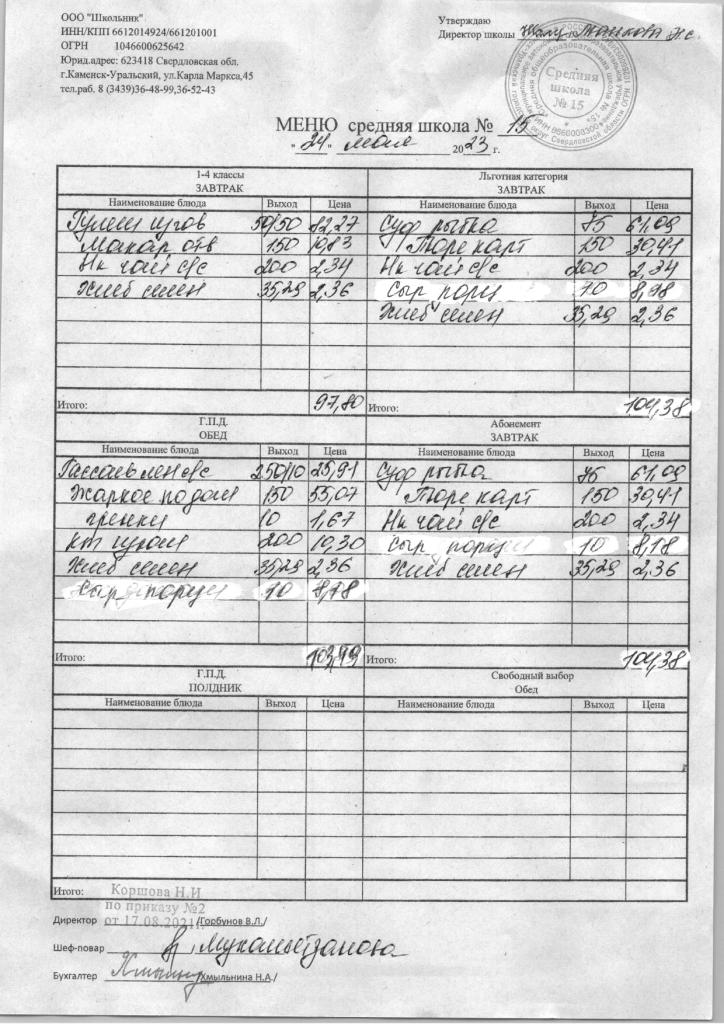 ООО "Школьник"
ИНН/КПП 6612014924/661201001
ОГРН 1046600625642
Юрид.адрес: 623418 Свердловская обл.
г.Каменск-Уральский, ул.Карла Маркса,45
тел.раб. 8 (3439)36-48-99,36-52-43
Утверждаю
Директор школы
Средняя школа № 15
МЕНЮ средняя школа № 15
"24" мая 2023 г.
1-4 классы
ЗАВТРАК
Наименование блюда Выход Цена
Гуляш 50/50 82,27
Макар отв 150 10,83
Нк чай с/с 200 2,34
Хлеб 35,29 2,36
Итого: 97,80
Льготная категория
ЗАВТРАК
Наименование блюда Выход Цена
Суф рыба 75 61,09
Пюре карт 150 30,41
Нк чай с/с 200 2,34
Сыр порц 10 8,18
Хлеб 35,29 2,36
Итого: 104,38
Г.П.Д.
ОБЕД
Наименование блюда Выход Цена
250/10 25,91
Жаркое по дом 150 55,07
гренки 10 1,67
200 10,30
Хлеб 35,29 2,36
Сыр порц 10 8,18
Итого: 103,49
Абонемент
ЗАВТРАК
Наименование блюда Выход Цена
Суф рыба 75 61,09
Пюре карт 150 30,41
Нк чай с/с 200 2,34
Сыр порц 10 8,18
Хлеб 35,29 2,36
Итого: 104,38
Г.П.Д.
ПОЛДНИК
Наименование блюда Выход Цена
Итого:
Свободный выбор
Обед
Наименование блюда Выход Цена
Коршова Н.И
по приказу №2
от 17.08.2021г.
Директор /Горбунов В.Л./
Шеф-повар
Бухгалтер /Хмыльнина Н.А./